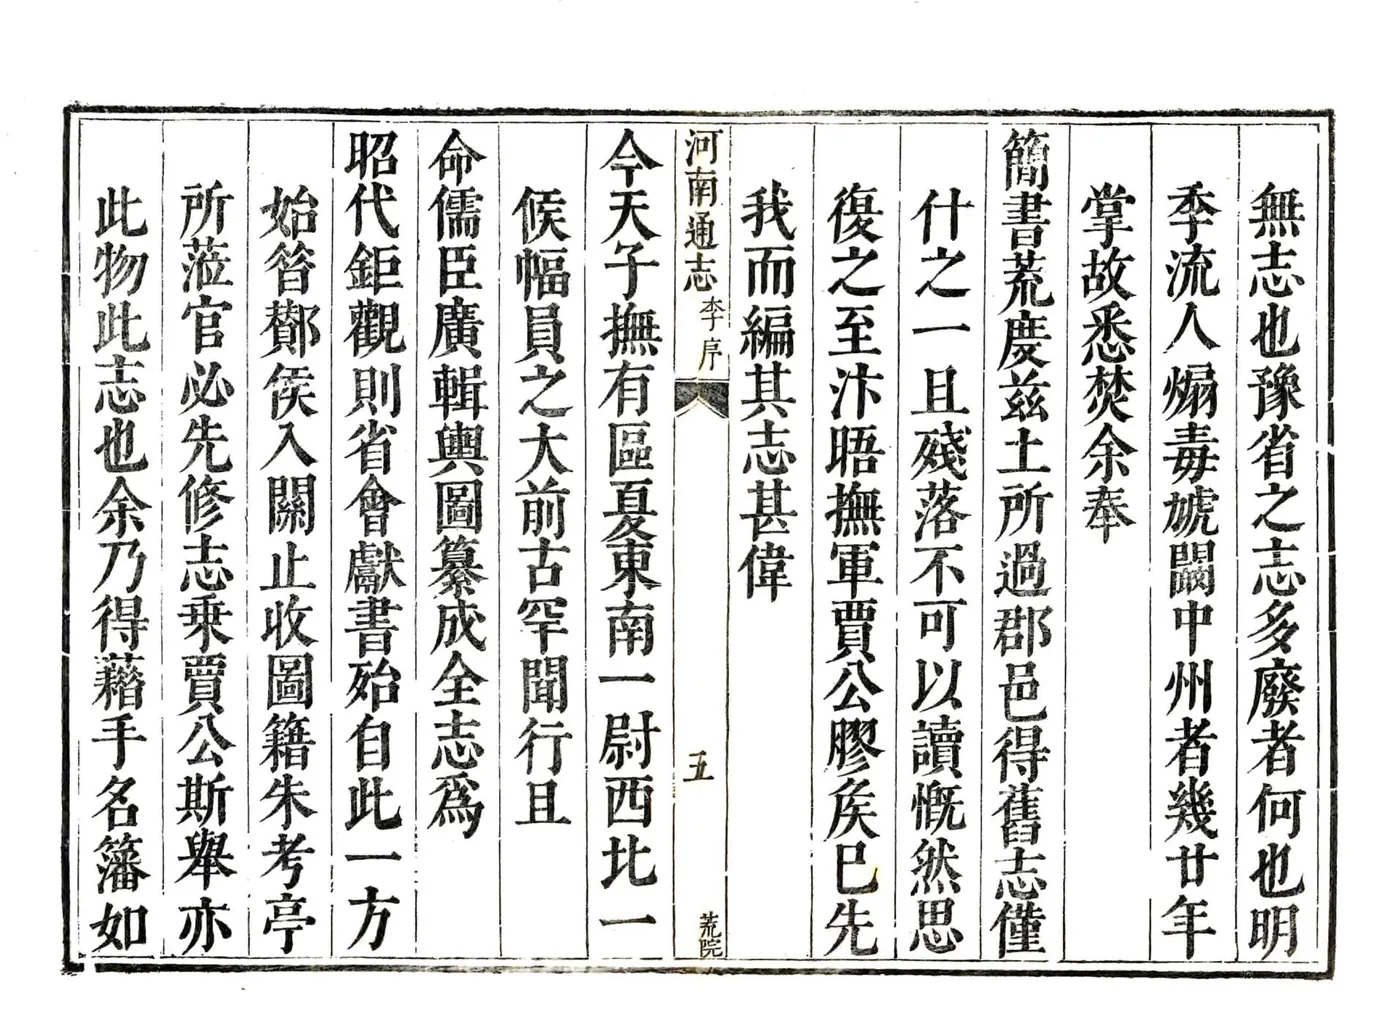 無志也豫省之志多廢者何也明
季流人煽毒虓闞中州者幾廿年
掌故悉焚余奉
簡書荒度茲土所過郡邑得舊志僅
什之一且殘落不可以讀慨然思
復之至汴晤撫軍賈公膠矦巳先
我而編其志甚偉
河南通志 李序 五 荒院
今天子撫有區夏東南一尉西北一
候幅員之大前古罕聞行且
命儒臣廣輯輿圖纂成全志爲
昭代鉅觀則省會獻書殆自此一方
始昝酇侯入關止收圖籍朱考亭
所蒞官必先修志乗賈公斯舉亦
此物此志也余乃得藉手名籓如